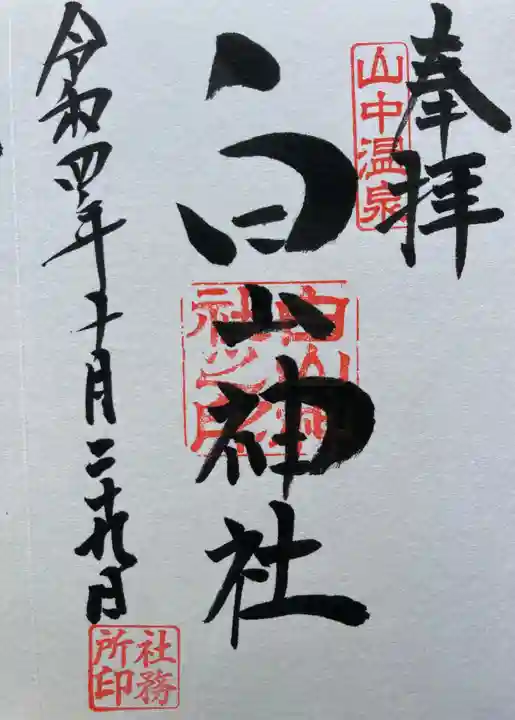 奉拝
山中温泉
白山神社
白山神社之印
令和四年十月二十九日
社務所印